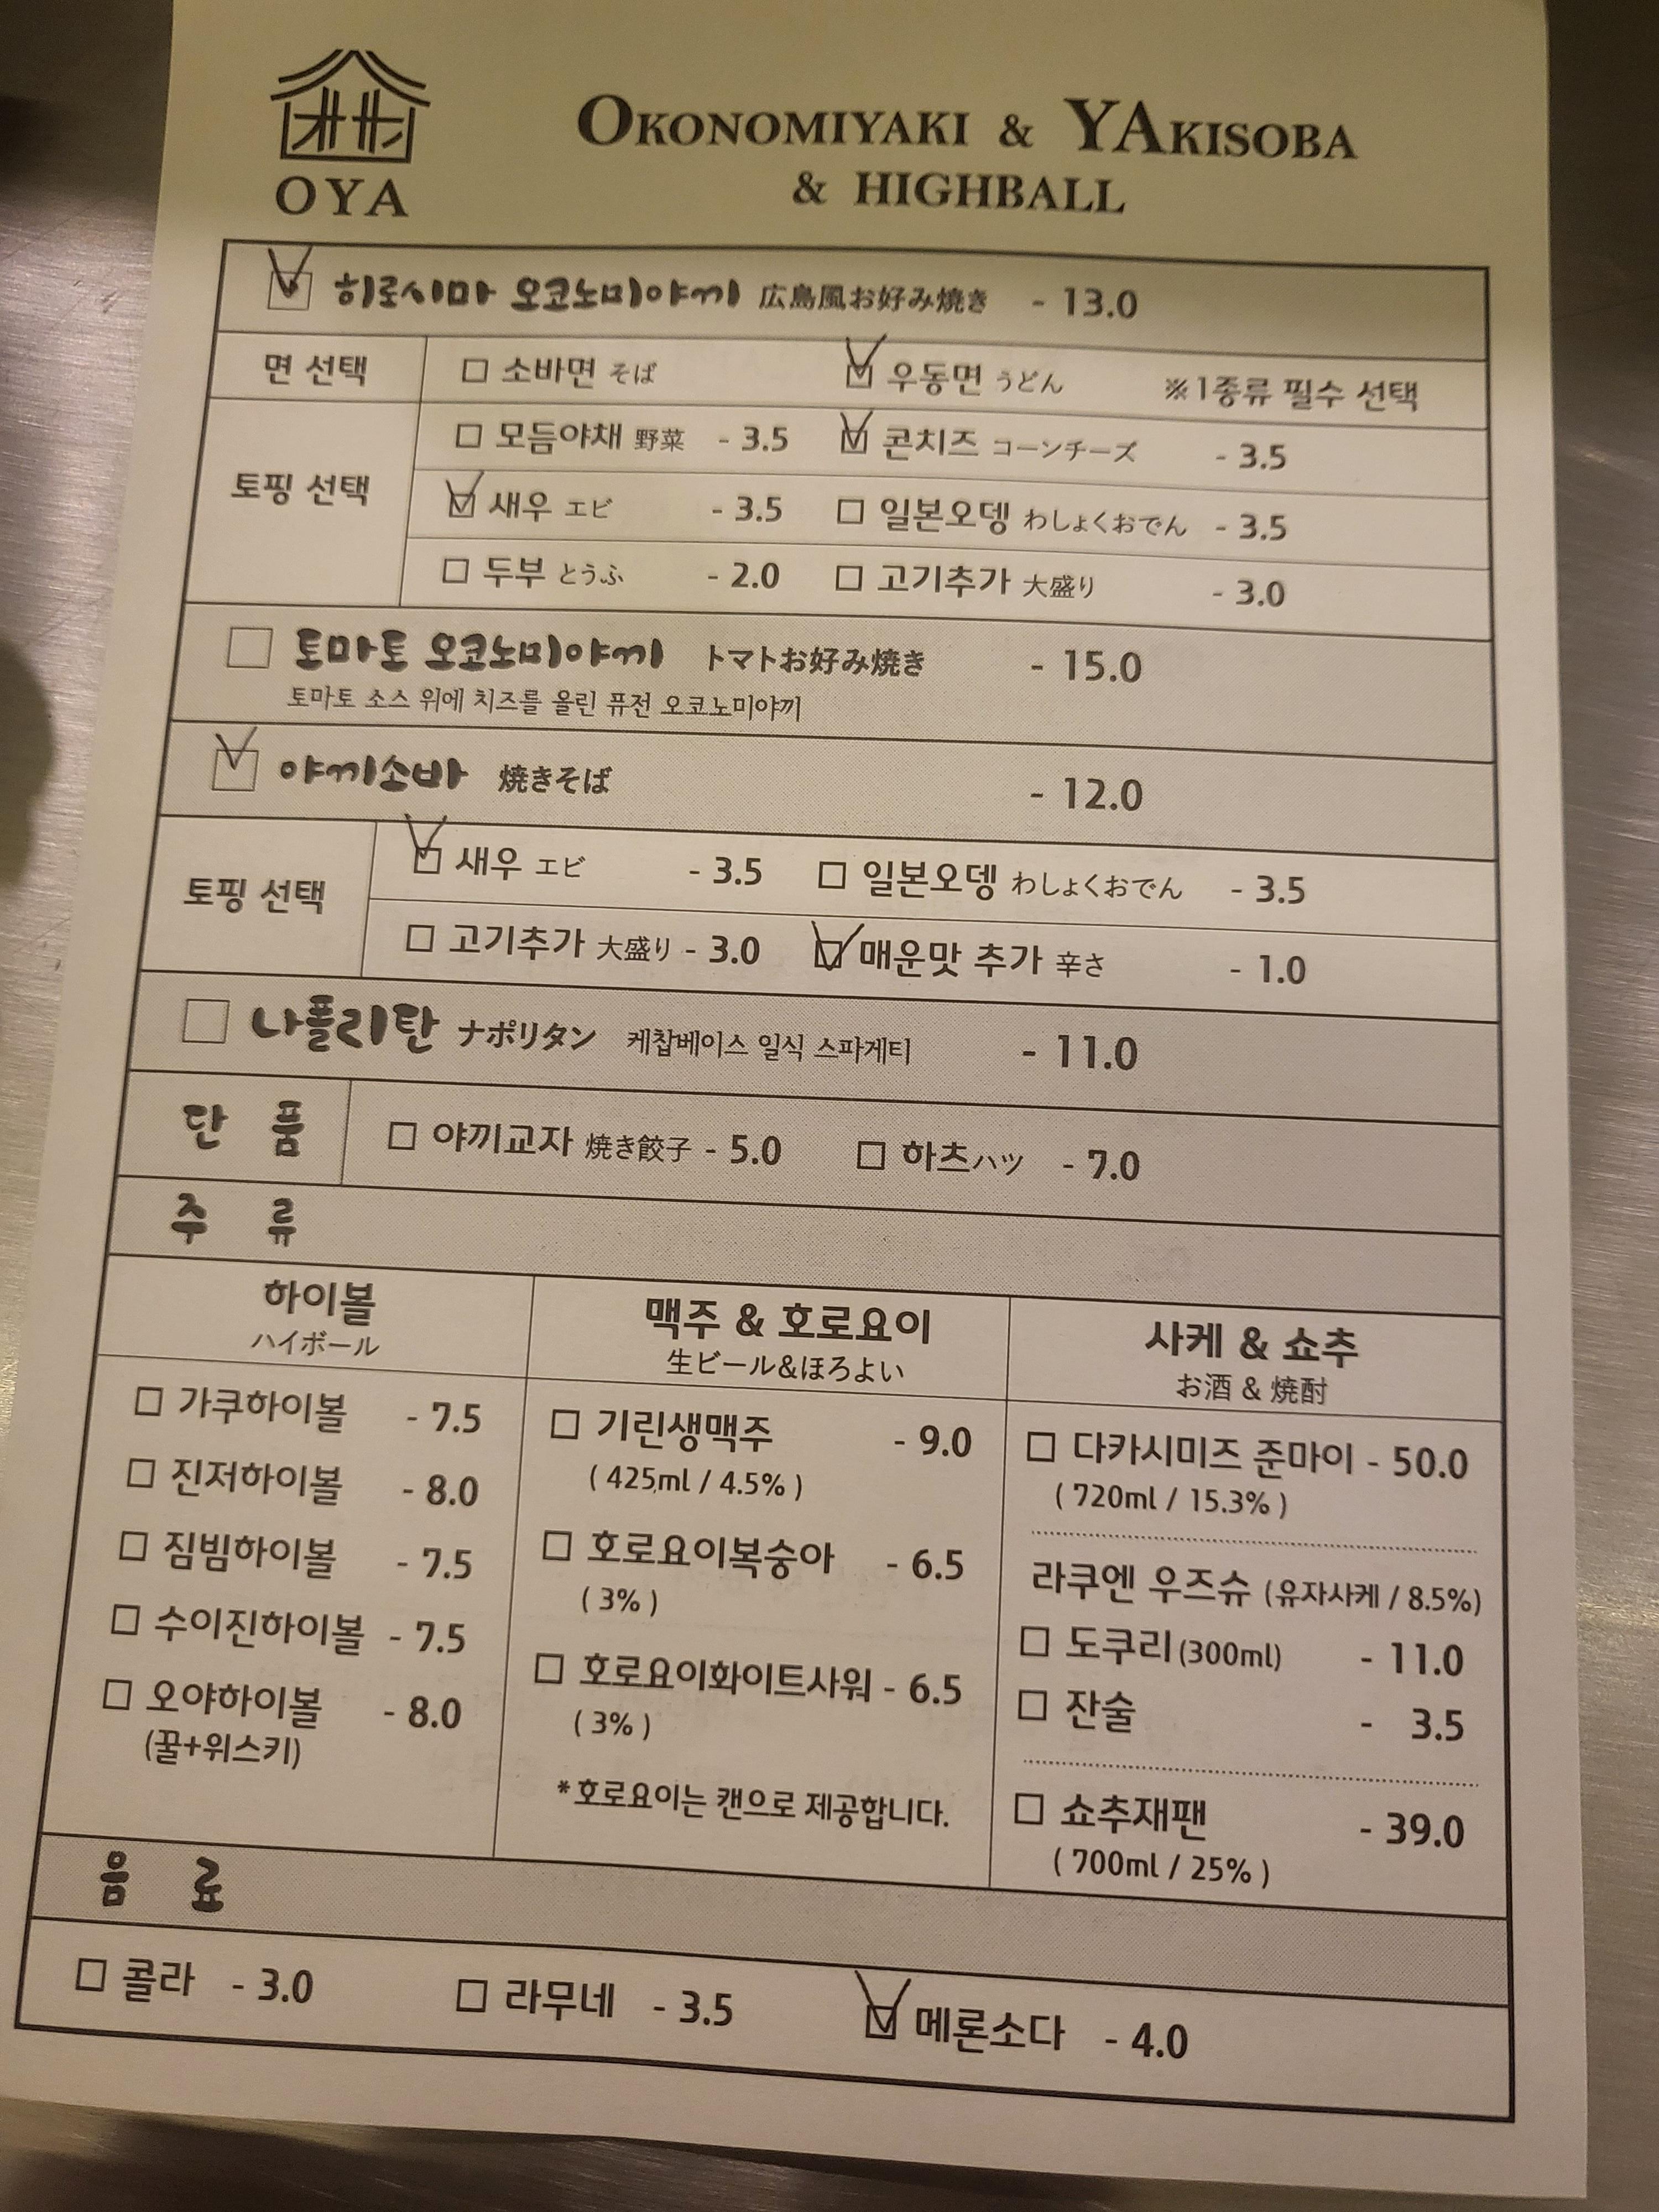 OYA
OKONOMIYAKI & YAKISOBA
& HIGHBALL
히로시마 오코노미야끼 広島風お好み焼き - 13.0
면 선택 소바면 そば 우동면 うどん ※1종류 필수 선택
토핑 선택
모듬야채 野菜 - 3.5 콘치즈 コーンチーズ - 3.5
새우 エビ - 3.5 일본오뎅 わしょくおでん - 3.5
두부 とうふ - 2.0 고기추가 大盛り - 3.0
토마토 오코노미야끼 トマトお好み焼き - 15.0
토마토 소스 위에 치즈를 올린 퓨전 오코노미야끼
야끼소바 焼きそば - 12.0
토핑 선택
새우 エビ - 3.5 일본오뎅 わしょくおでん - 3.5
고기추가 大盛り - 3.0 매운맛 추가 辛さ - 1.0
나폴리탄 ナポリタン 케찹베이스 일식 스파게티 - 11.0
단 품 야끼교자 焼き餃子 - 5.0 하츠 ハツ - 7.0
주 류
하이볼
ハイボール
가쿠하이볼 - 7.5
진저하이볼 - 8.0
짐빔하이볼 - 7.5
수이진하이볼 - 7.5
오야하이볼 - 8.0
(꿀+위스키)
맥주 & 호로요이
生ビール&ほろよい
기린생맥주 - 9.0
( 425ml / 4.5% )
호로요이복숭아 - 6.5
( 3% )
호로요이화이트사워 - 6.5
( 3% )
*호로요이는 캔으로 제공합니다.
사케 & 쇼추
お酒 & 焼酎
다카시미즈 준마이 - 50.0
( 720ml / 15.3% )
라쿠엔 우즈슈 (유자사케 / 8.5%)
도쿠리 (300ml) - 11.0
잔술 - 3.5
쇼추재팬 - 39.0
( 700ml / 25% )
음 료
콜라 - 3.0 라무네 - 3.5 메론소다 - 4.0